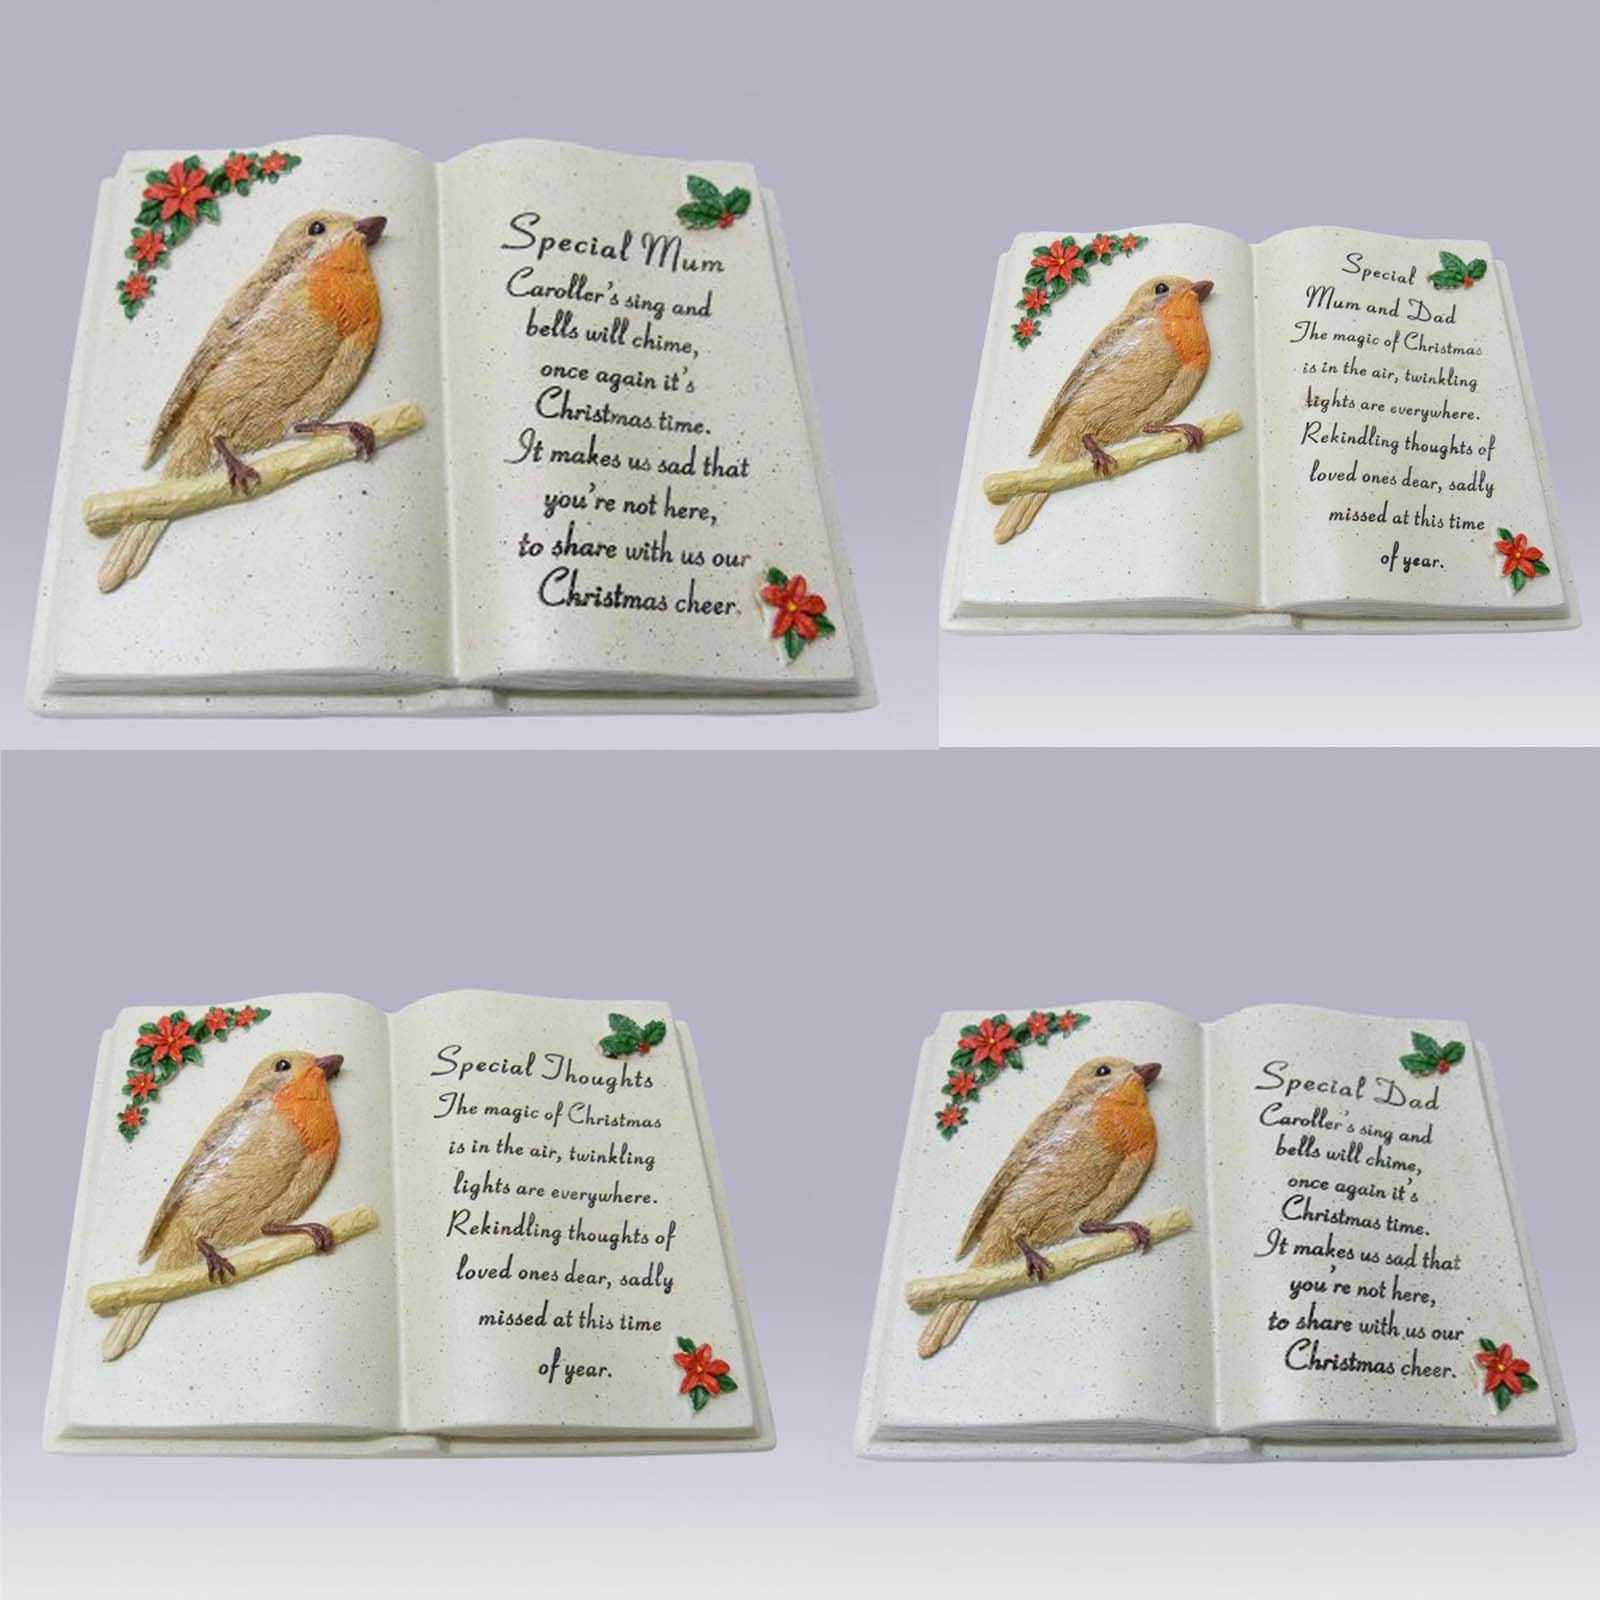 Special Mum
Caroller's sing and
bells will chime,
once again it's
Christmas time.
It makes us sad that
you're not here,
to share with us our
Christmas cheer.
Special
Mum and Dad
The magic of Christmas
is in the air, twinkling
lights are everywhere.
Rekindling thoughts of
loved ones dear, sadly
missed at this time
of year.
Special Thoughts
The magic of Christmas
is in the air, twinkling
lights are everywhere.
Rekindling thoughts of
loved ones dear, sadly
missed at this time
of year.
Special Dad
Caroller's sing and
bells will chime,
once again it's
Christmas time.
It makes us sad that
you're not here,
to share with us our
Christmas cheer.